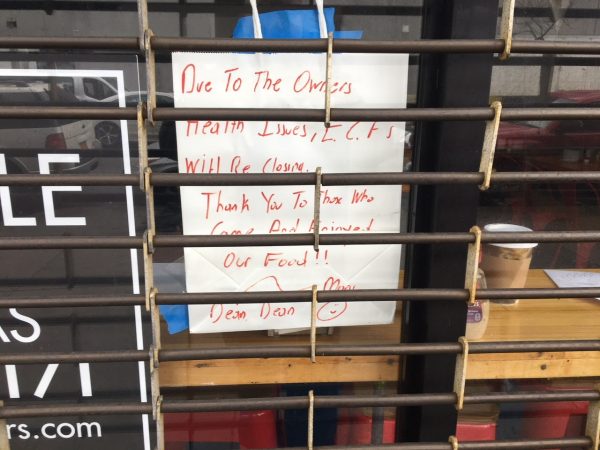 Due To The Owners
Health Issues, E.C.F's
Will Be Closing.
Thank You To Those Who
Came And Enjoyed
Our Food!!
Dean, Dean
LE
AS
171
rs.com